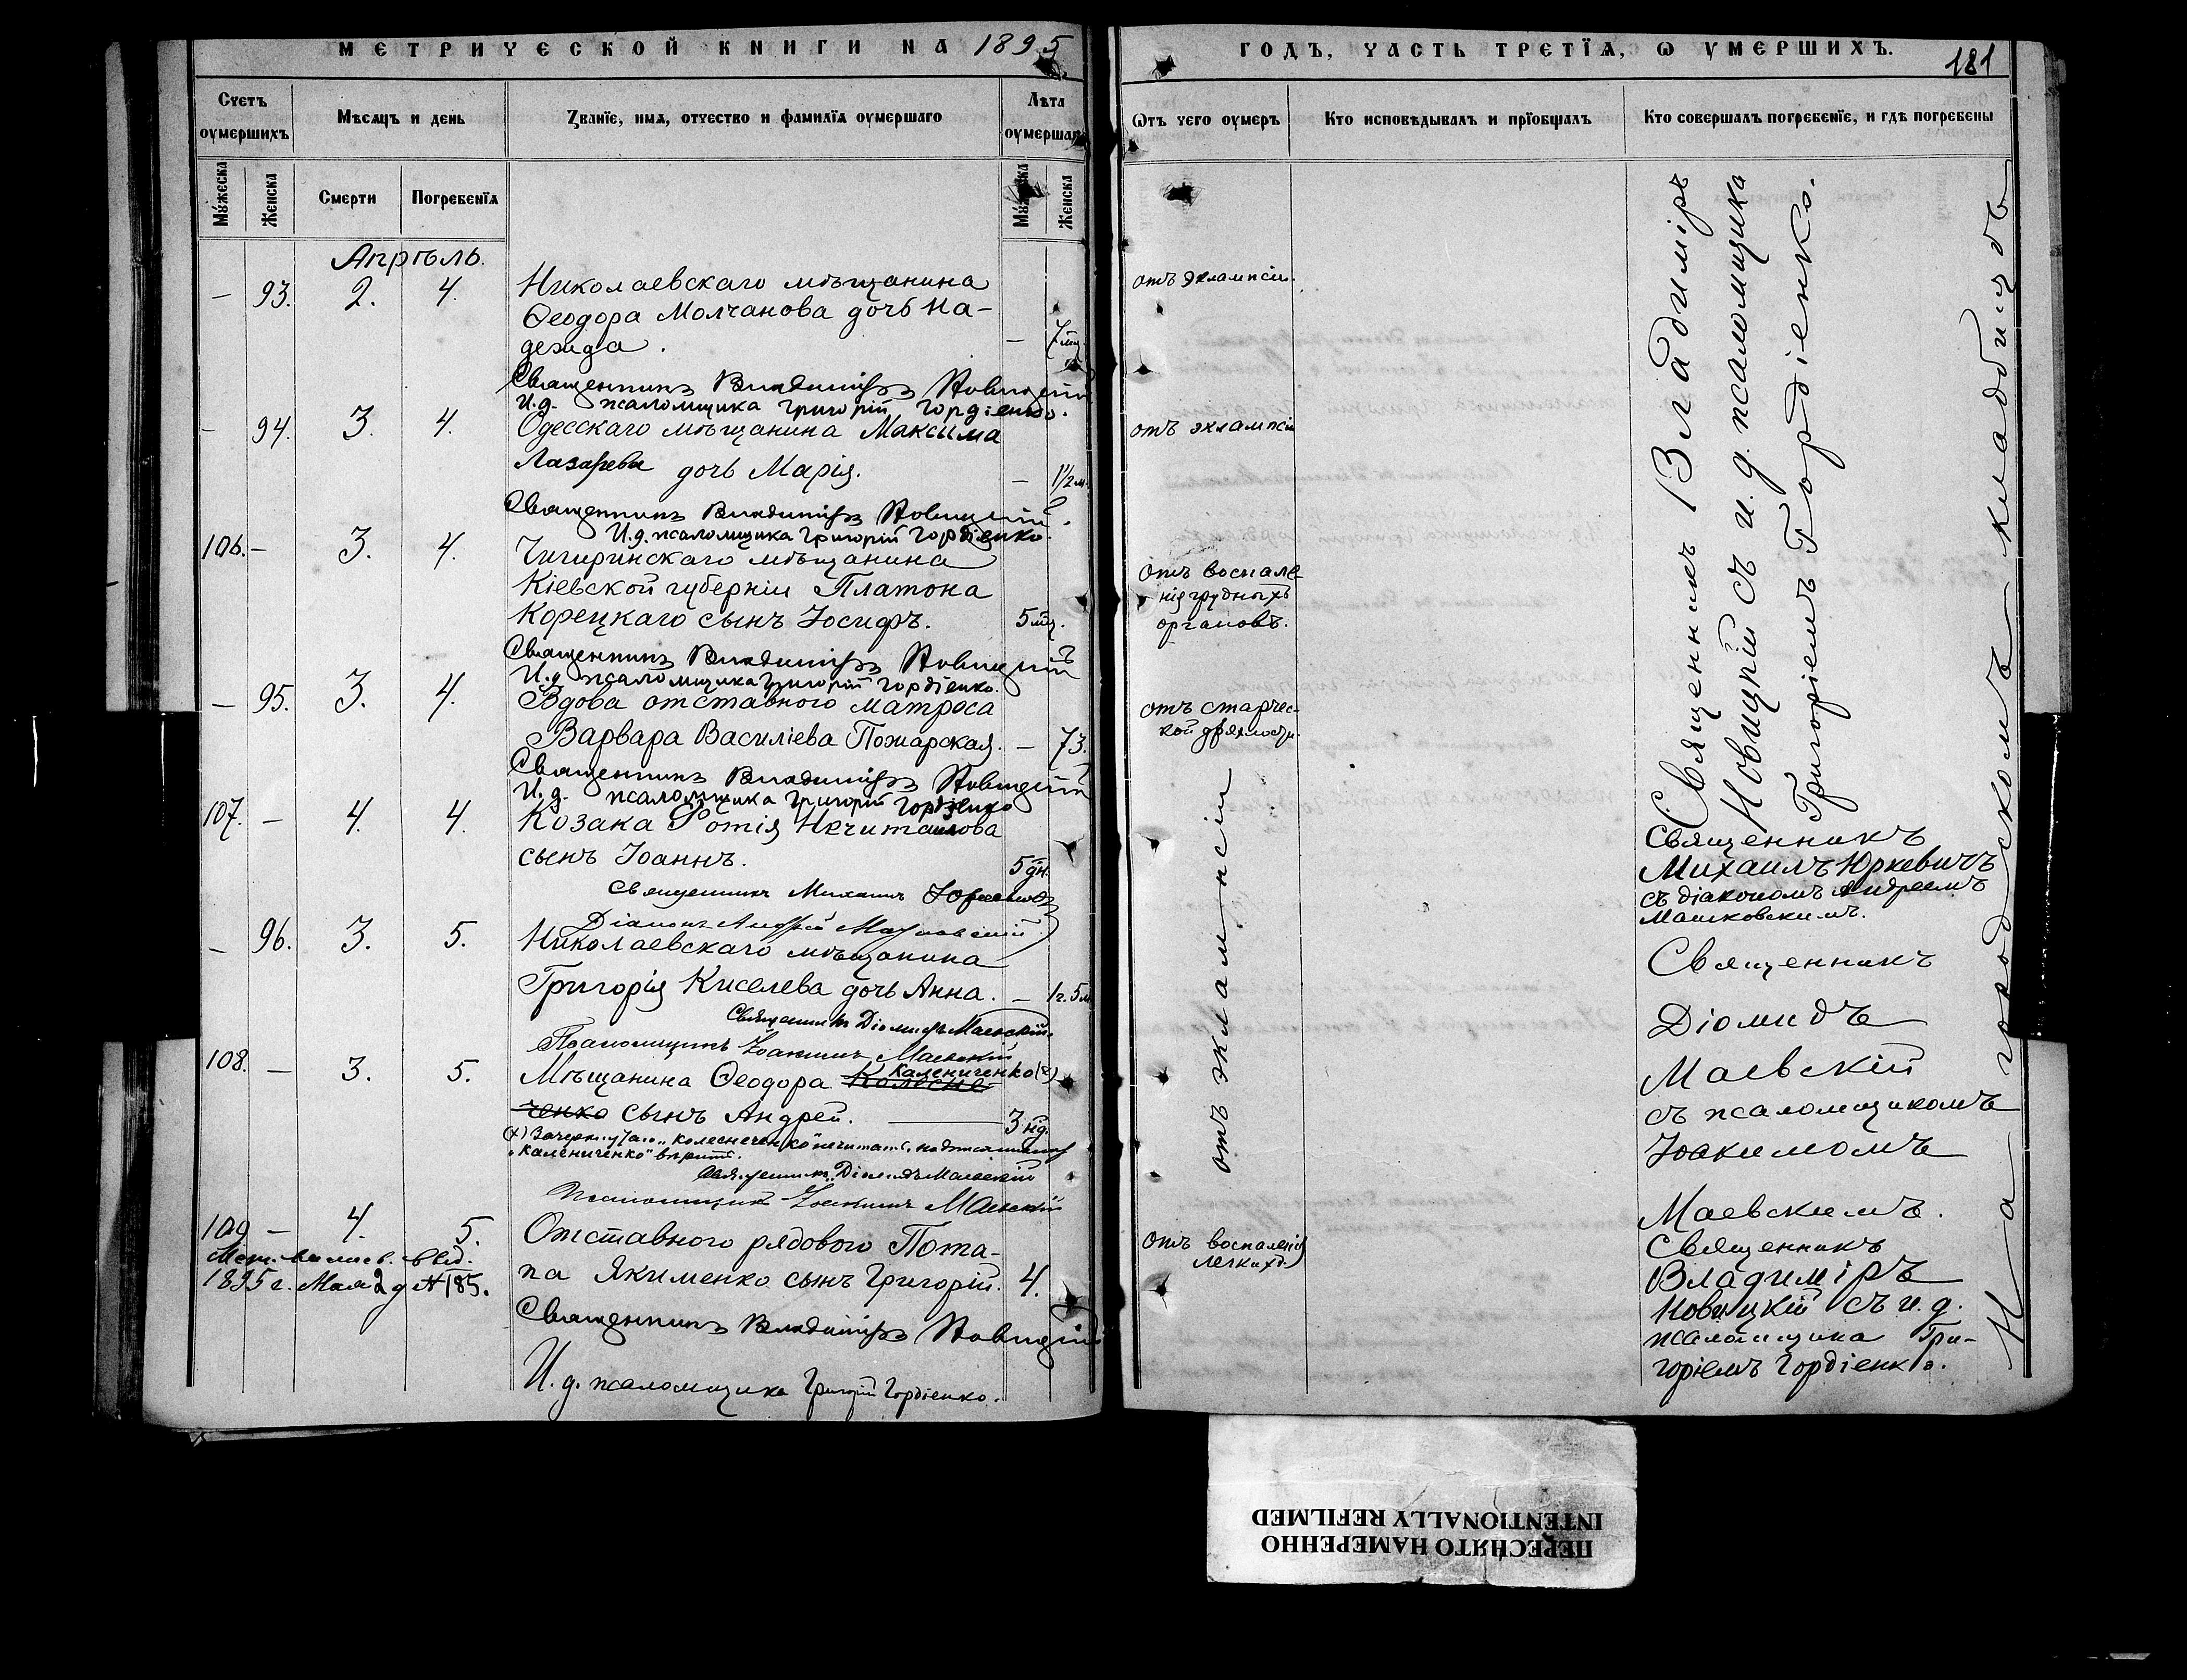 МЕТРИЧЕСКОЙ КНИГИ НА 1895
Счетъ оумершихъ
Мѣсяцъ и день
Званїе, имя, отчество и фамилїя оумершаго
Лѣта оумершаго
Мужеска
Женска
Смерти
Погребенїя
Мужеска
Женска
Апрѣль.
— 93. 2. 4. Николаевскаго мѣщанина
Ѳеодора Молчанова дочь На-
дежда. — 7 мц.
Священникъ Владиміръ Новицкій
И.д. псаломщика Григорій Гордіенко.
— 94. 3. 4. Одесскаго мѣщанина Максима
Лазарева дочь Марія. — 1½ м.
Священникъ Владиміръ Новицкій.
И.д. псаломщика Григорій Гордіенко.
106. — 3. 4. Чигиринскаго мѣщанина
Кіевской губерніи Платона
Корецкаго сынъ Іосифъ. 5 мц.
Священникъ Владиміръ Новицкій
И.д. псаломщика Григорій Гордіенко.
— 95. 3. 4. Вдова отставного матроса
Варвара Василіева Пожарская. — 73.
Священникъ Владиміръ Новицкій
И.д. псаломщика Григорій Гордіенко
107. — 4. 4. Козака Фотія Нечитайлова
сынъ Іоаннъ. 5 дн.
Священникъ Михаилъ Юркевичъ
Діаконъ Андрей Машковскій
— 96. 3. 5. Николаевскаго мѣщанина
Григорія Киселева дочь Анна. — 1 г. 5 м
Священникъ Діомидъ Маевскій.
Псаломщикъ Іоакимъ Маевскій
108. — 3. 5. Мѣщанина Ѳеодора Колесне- Калениченко (х)
ченко сынъ Андрей. 3 нд.
(х) Зачеркнутаго „колеснеченко" не читать, надписанному
„Калениченко" вѣрить.
Священникъ Діомидъ Маевскій
Псаломщикъ Іоакимъ Маевскій
109 — 4. 5. Отставного рядового Пота-
па Якименко сынъ Григорій. 4.
Мет. выпис. выд.
1895 г. Мая 2 д № 185.
Священникъ Владиміръ Новицкій
И.д. псаломщика Григорій Гордіенко.
ГОДЪ, ЧАСТЬ ТРЕТЇЯ, Ѡ УМЕРШИХЪ.
181
Ѿтъ чего оумеръ
Кто исповѣдывалъ и прїобщалъ
Кто совершалъ погребенїе, и гдѣ погребены
отъ эклампсіи.
отъ эклампсіи
отъ воспале-
нія грудныхъ
органовъ.
отъ старчес-
кой дряхлости.
отъ эклампсіи
отъ воспаленія
легкихъ.
Священникъ Владиміръ
Новицкій съ и.д. псаломщика
Григоріемъ Гордіенко.
Священникъ
Михаилъ Юркевичъ
съ діакономъ Андреемъ
Машковскимъ.
Священникъ
Діомидъ
Маевскій
съ псаломщикомъ
Іоакимомъ
Маевскимъ.
Священникъ
Владиміръ
Новицкій съ и.д.
псаломщика Гри-
горіемъ Гордіенко.
На городскомъ кладбищѣ
ПЕРЕСНЯТО НАМЕРЕННО
INTENTIONALLY REFILMED